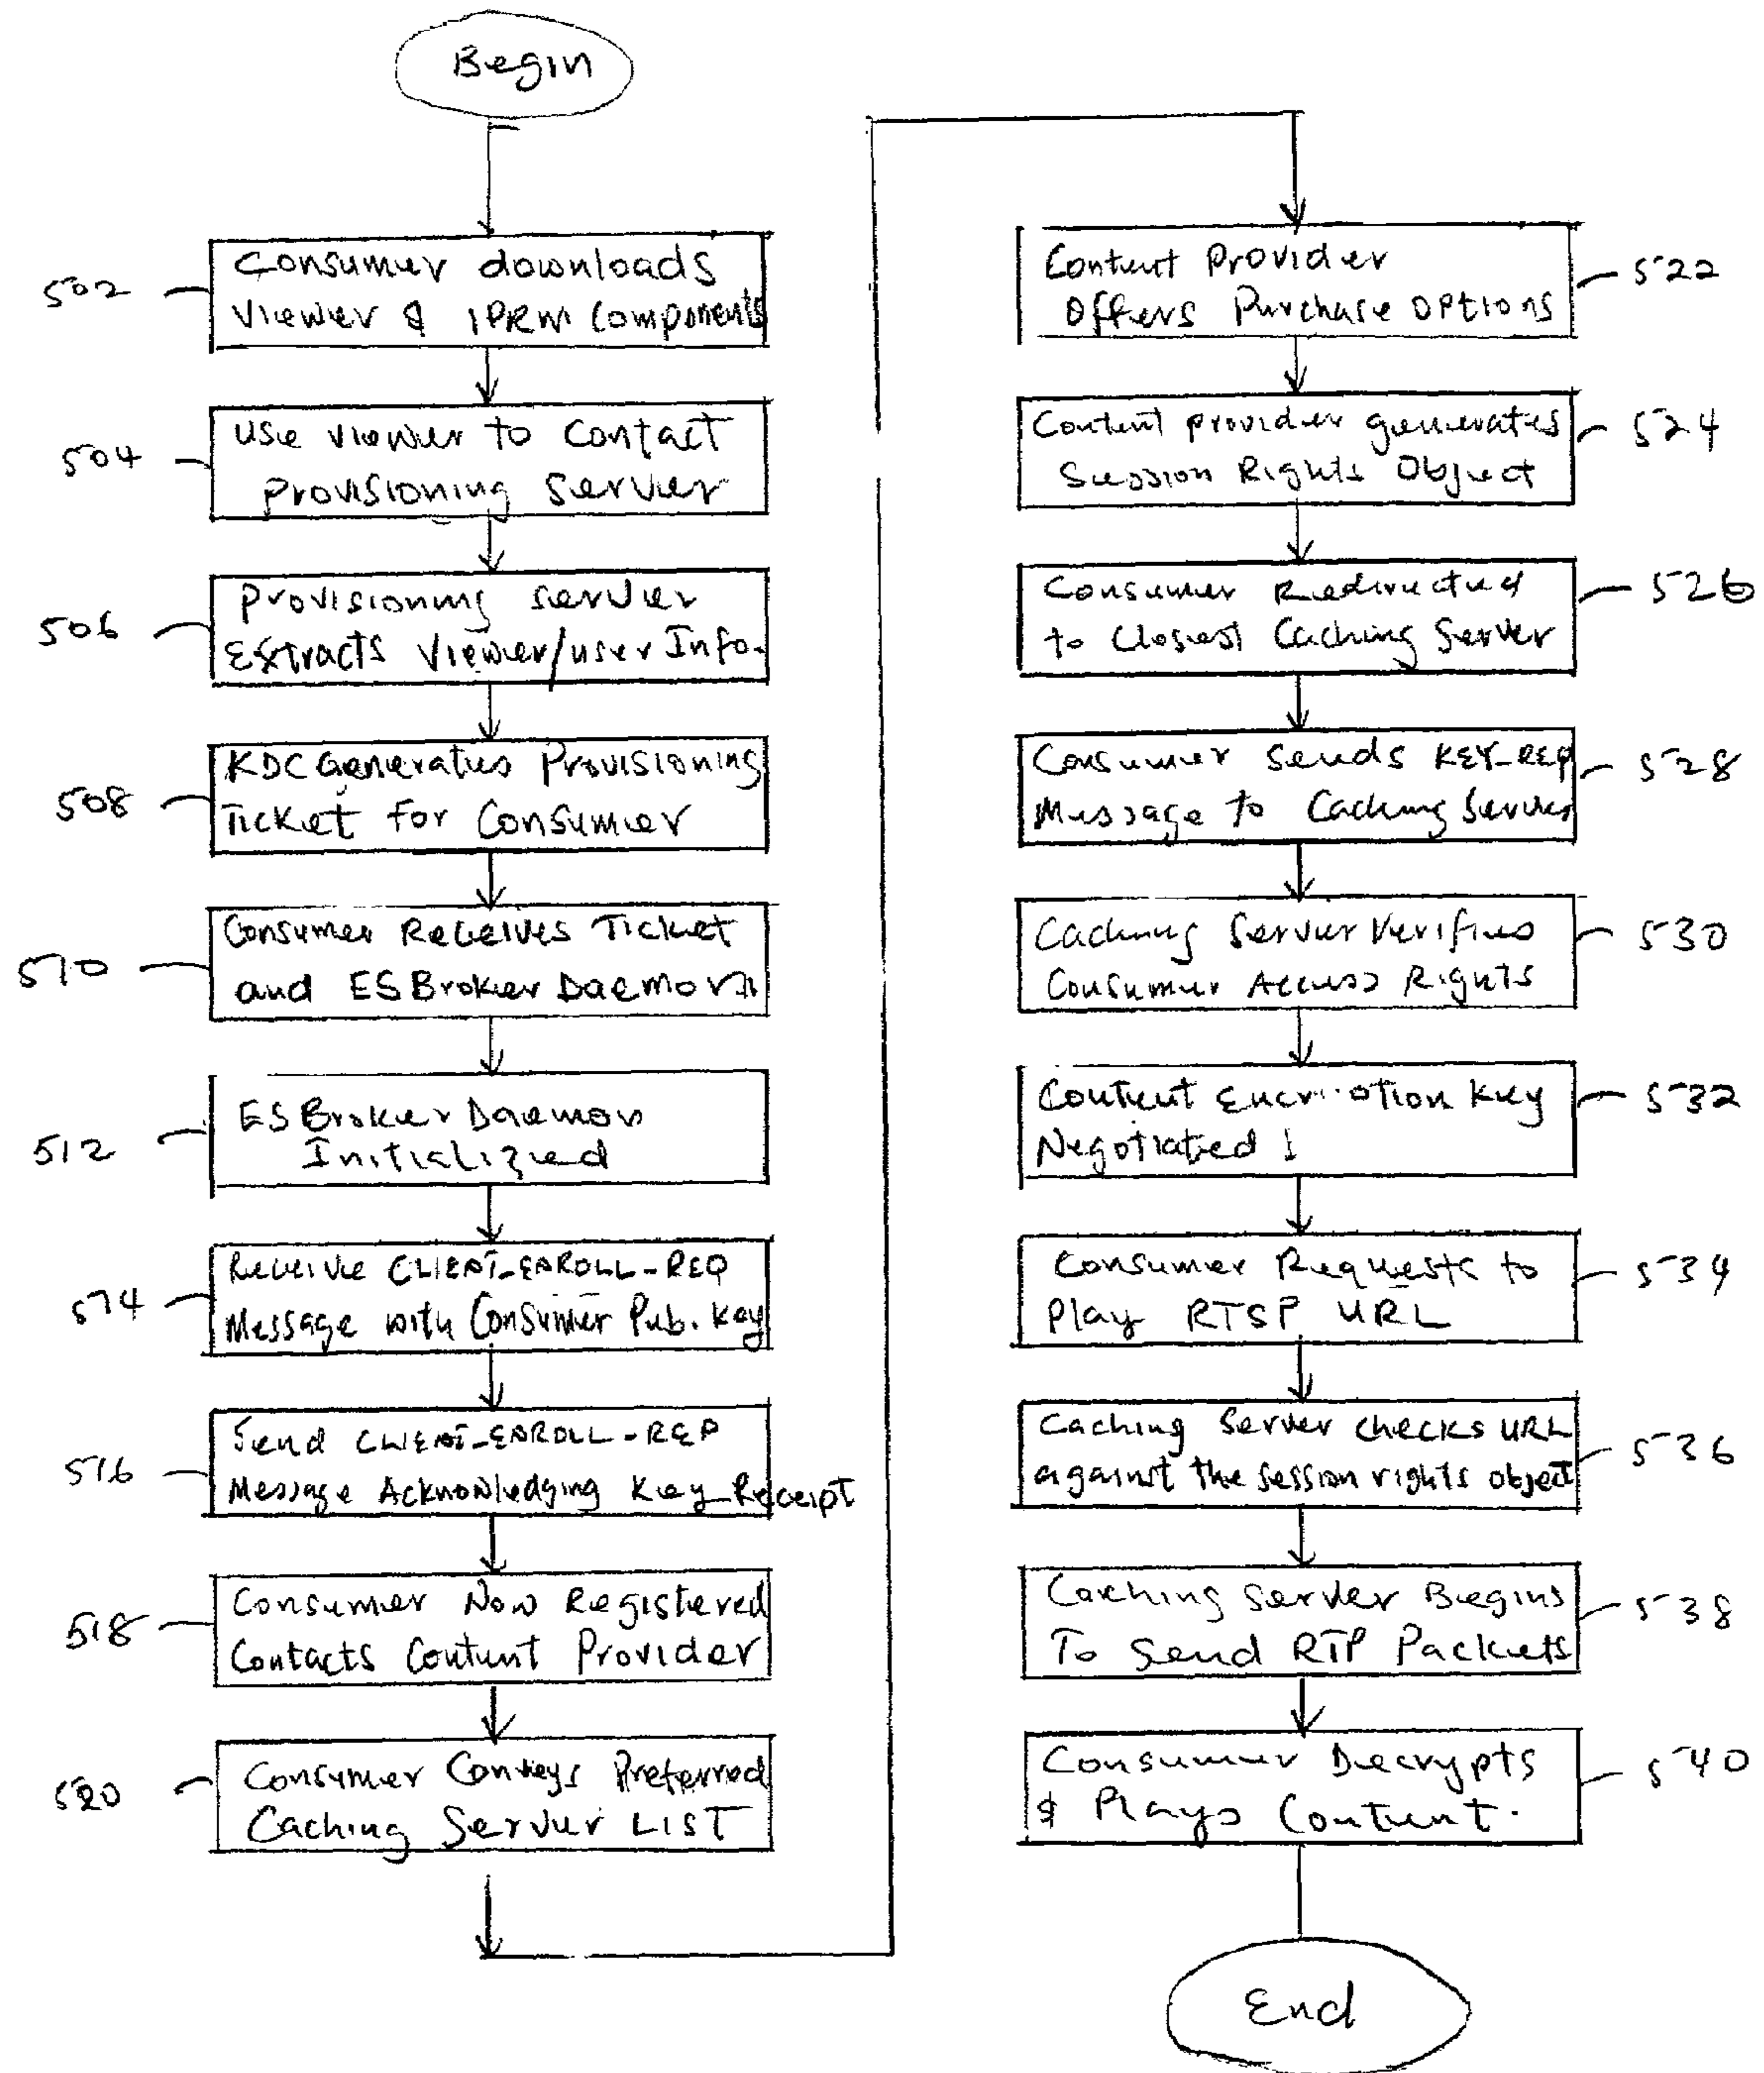 Begin
502
Consumer downloads
Viewer & IPRM Components
504
Use viewer to Contact
provisioning Server
506
Provisioning server
Extracts Viewer/user Info.
508
KDC Generates Provisioning
Ticket For Consumer
510
Consumer Receives Ticket
and ESBroker Daemon
512
ESBroker Daemon
Initialized
514
Receive CLIENT_ENROLL_REQ
Message with Consumer Pub. Key
516
Send CLIENT_ENROLL_REP
Message Acknowledging Key Receipt
518
Consumer Now Registered
Contacts Content Provider
520
Consumer Conveys Preferred
Caching Server LIST
Content Provider
Offers Purchase Options
522
Content provider generates
Session Rights Object
524
Consumer Redirected
to Closest Caching Server
526
Consumer Sends KEY_REQ
Message to Caching Server
528
Caching Server Verifies
Consumer Access Rights
530
Content Encryption Key
Negotiated
532
Consumer Requests to
Play RTSP URL
534
Caching Server checks URL
against the session rights object
536
Caching Server Begins
To Send RTP Packets
538
Consumer Decrypts
& Plays Content.
540
End